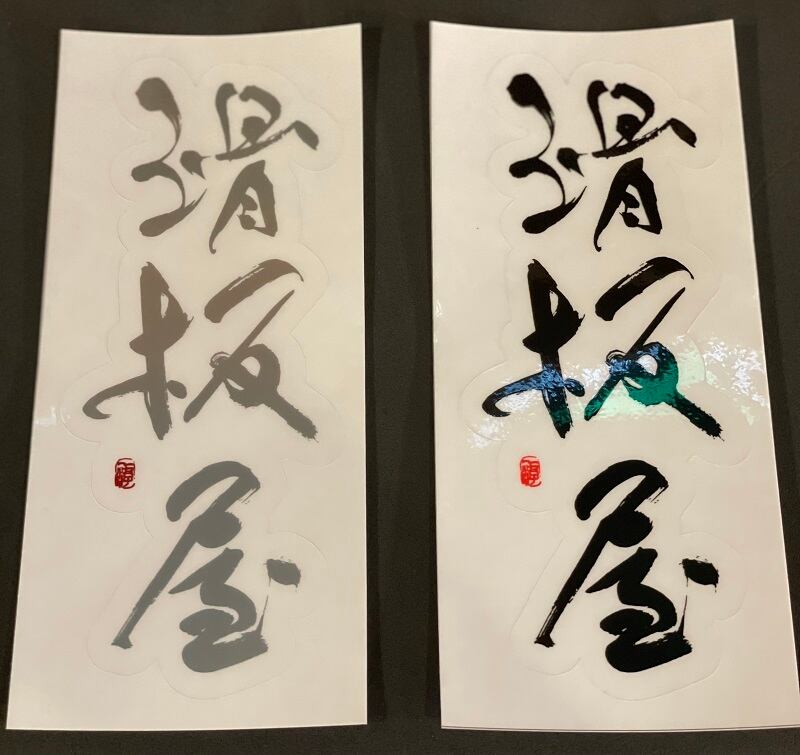 滑板屋
滑板屋